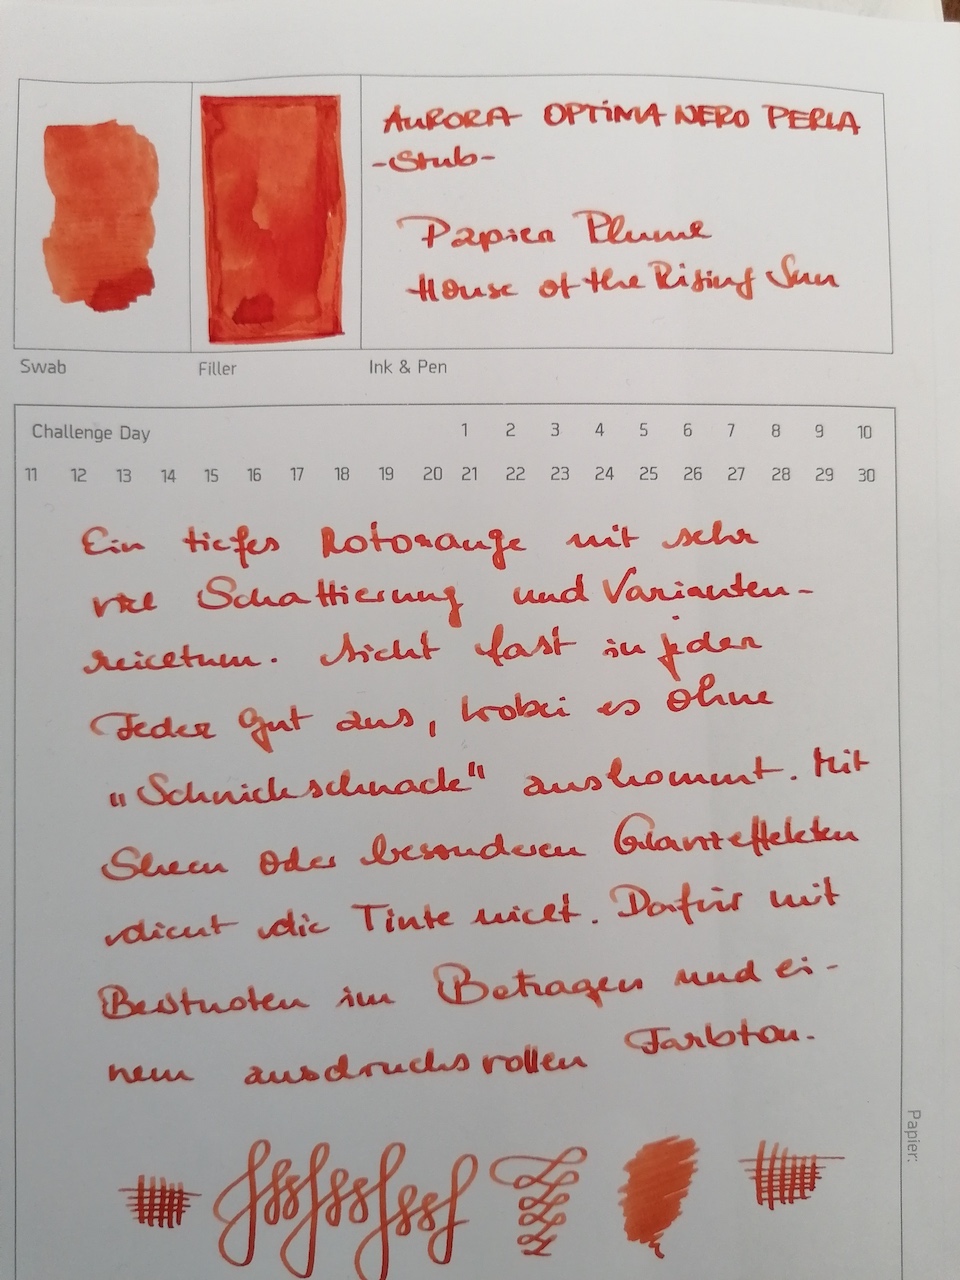 AURORA OPTIMA NERO PERLA
-Stub-
Papier Plume
House of the Rising Sun
Swab
Filler
Ink & Pen
Challenge Day 1 2 3 4 5 6 7 8 9 10
11 12 13 14 15 16 17 18 19 20 21 22 23 24 25 26 27 28 29 30
Ein tiefes Rotorange mit sehr
viel Schattierung und Varianten-
reichtum. Sieht fast in jeder
Feder gut aus, wobei es ohne
"Schnickschnack" auskommt. Mit
Sheen oder besonderen Glanzeffekten
dient die Tinte nicht. Dafür mit
Bestnoten im Betragen und ei-
nem ausdrucksvollen Farbton.
Papier: